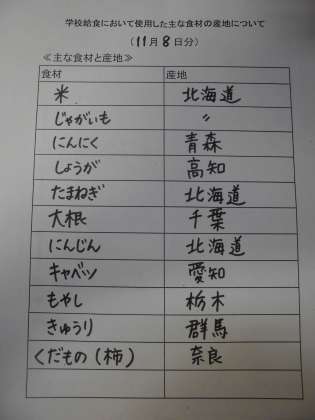 学校給食において使用した主な食材の産地について
(11月8日分)
≪主な食材と産地≫
食材 産地
米 北海道
じゃがいも 〃
にんにく 青森
しょうが 高知
たまねぎ 北海道
大根 千葉
にんじん 北海道
キャベツ 愛知
もやし 栃木
きゅうり 群馬
くだもの(柿) 奈良